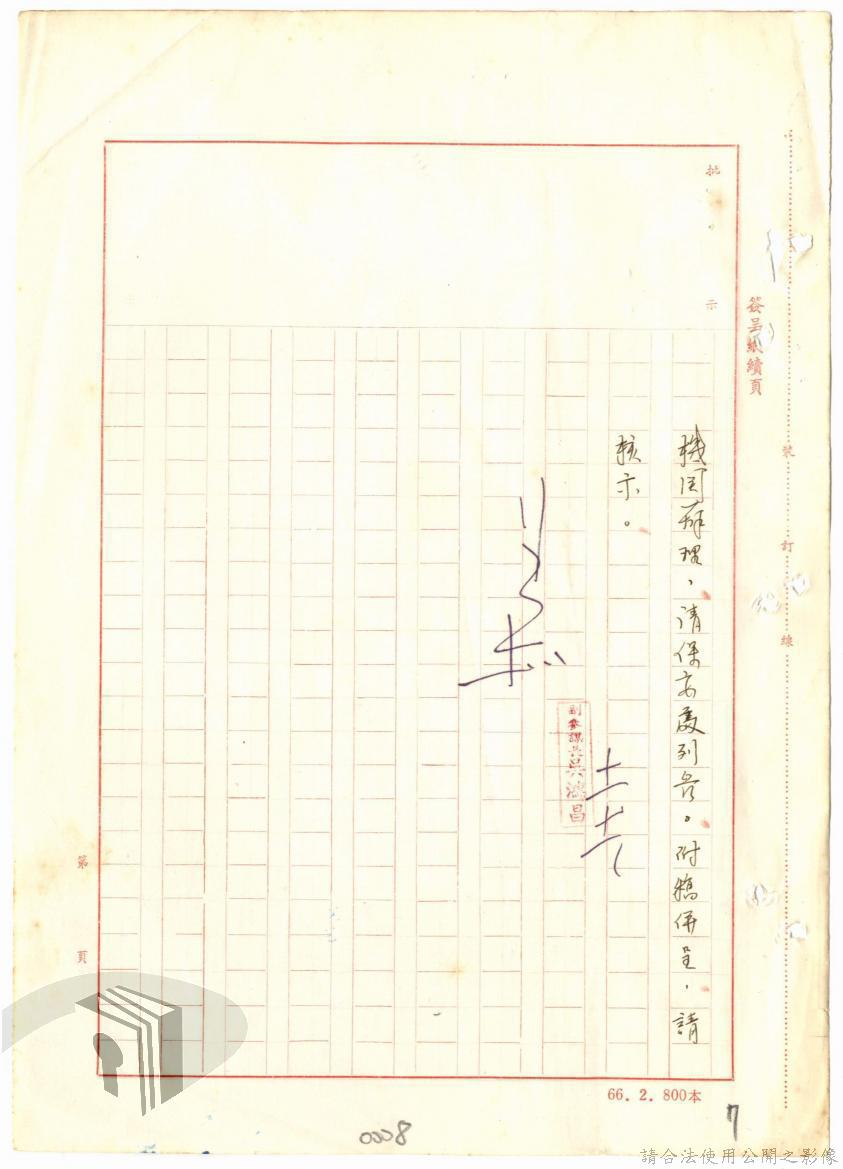 簽呈紙續頁
批
示
裝
訂
線
機關辦理，請保安處列管。附稿併呈，請
核示。
副參謀長吳鴻昌
第
頁
66.2.800本
7
0008
請合法使用公開之影像